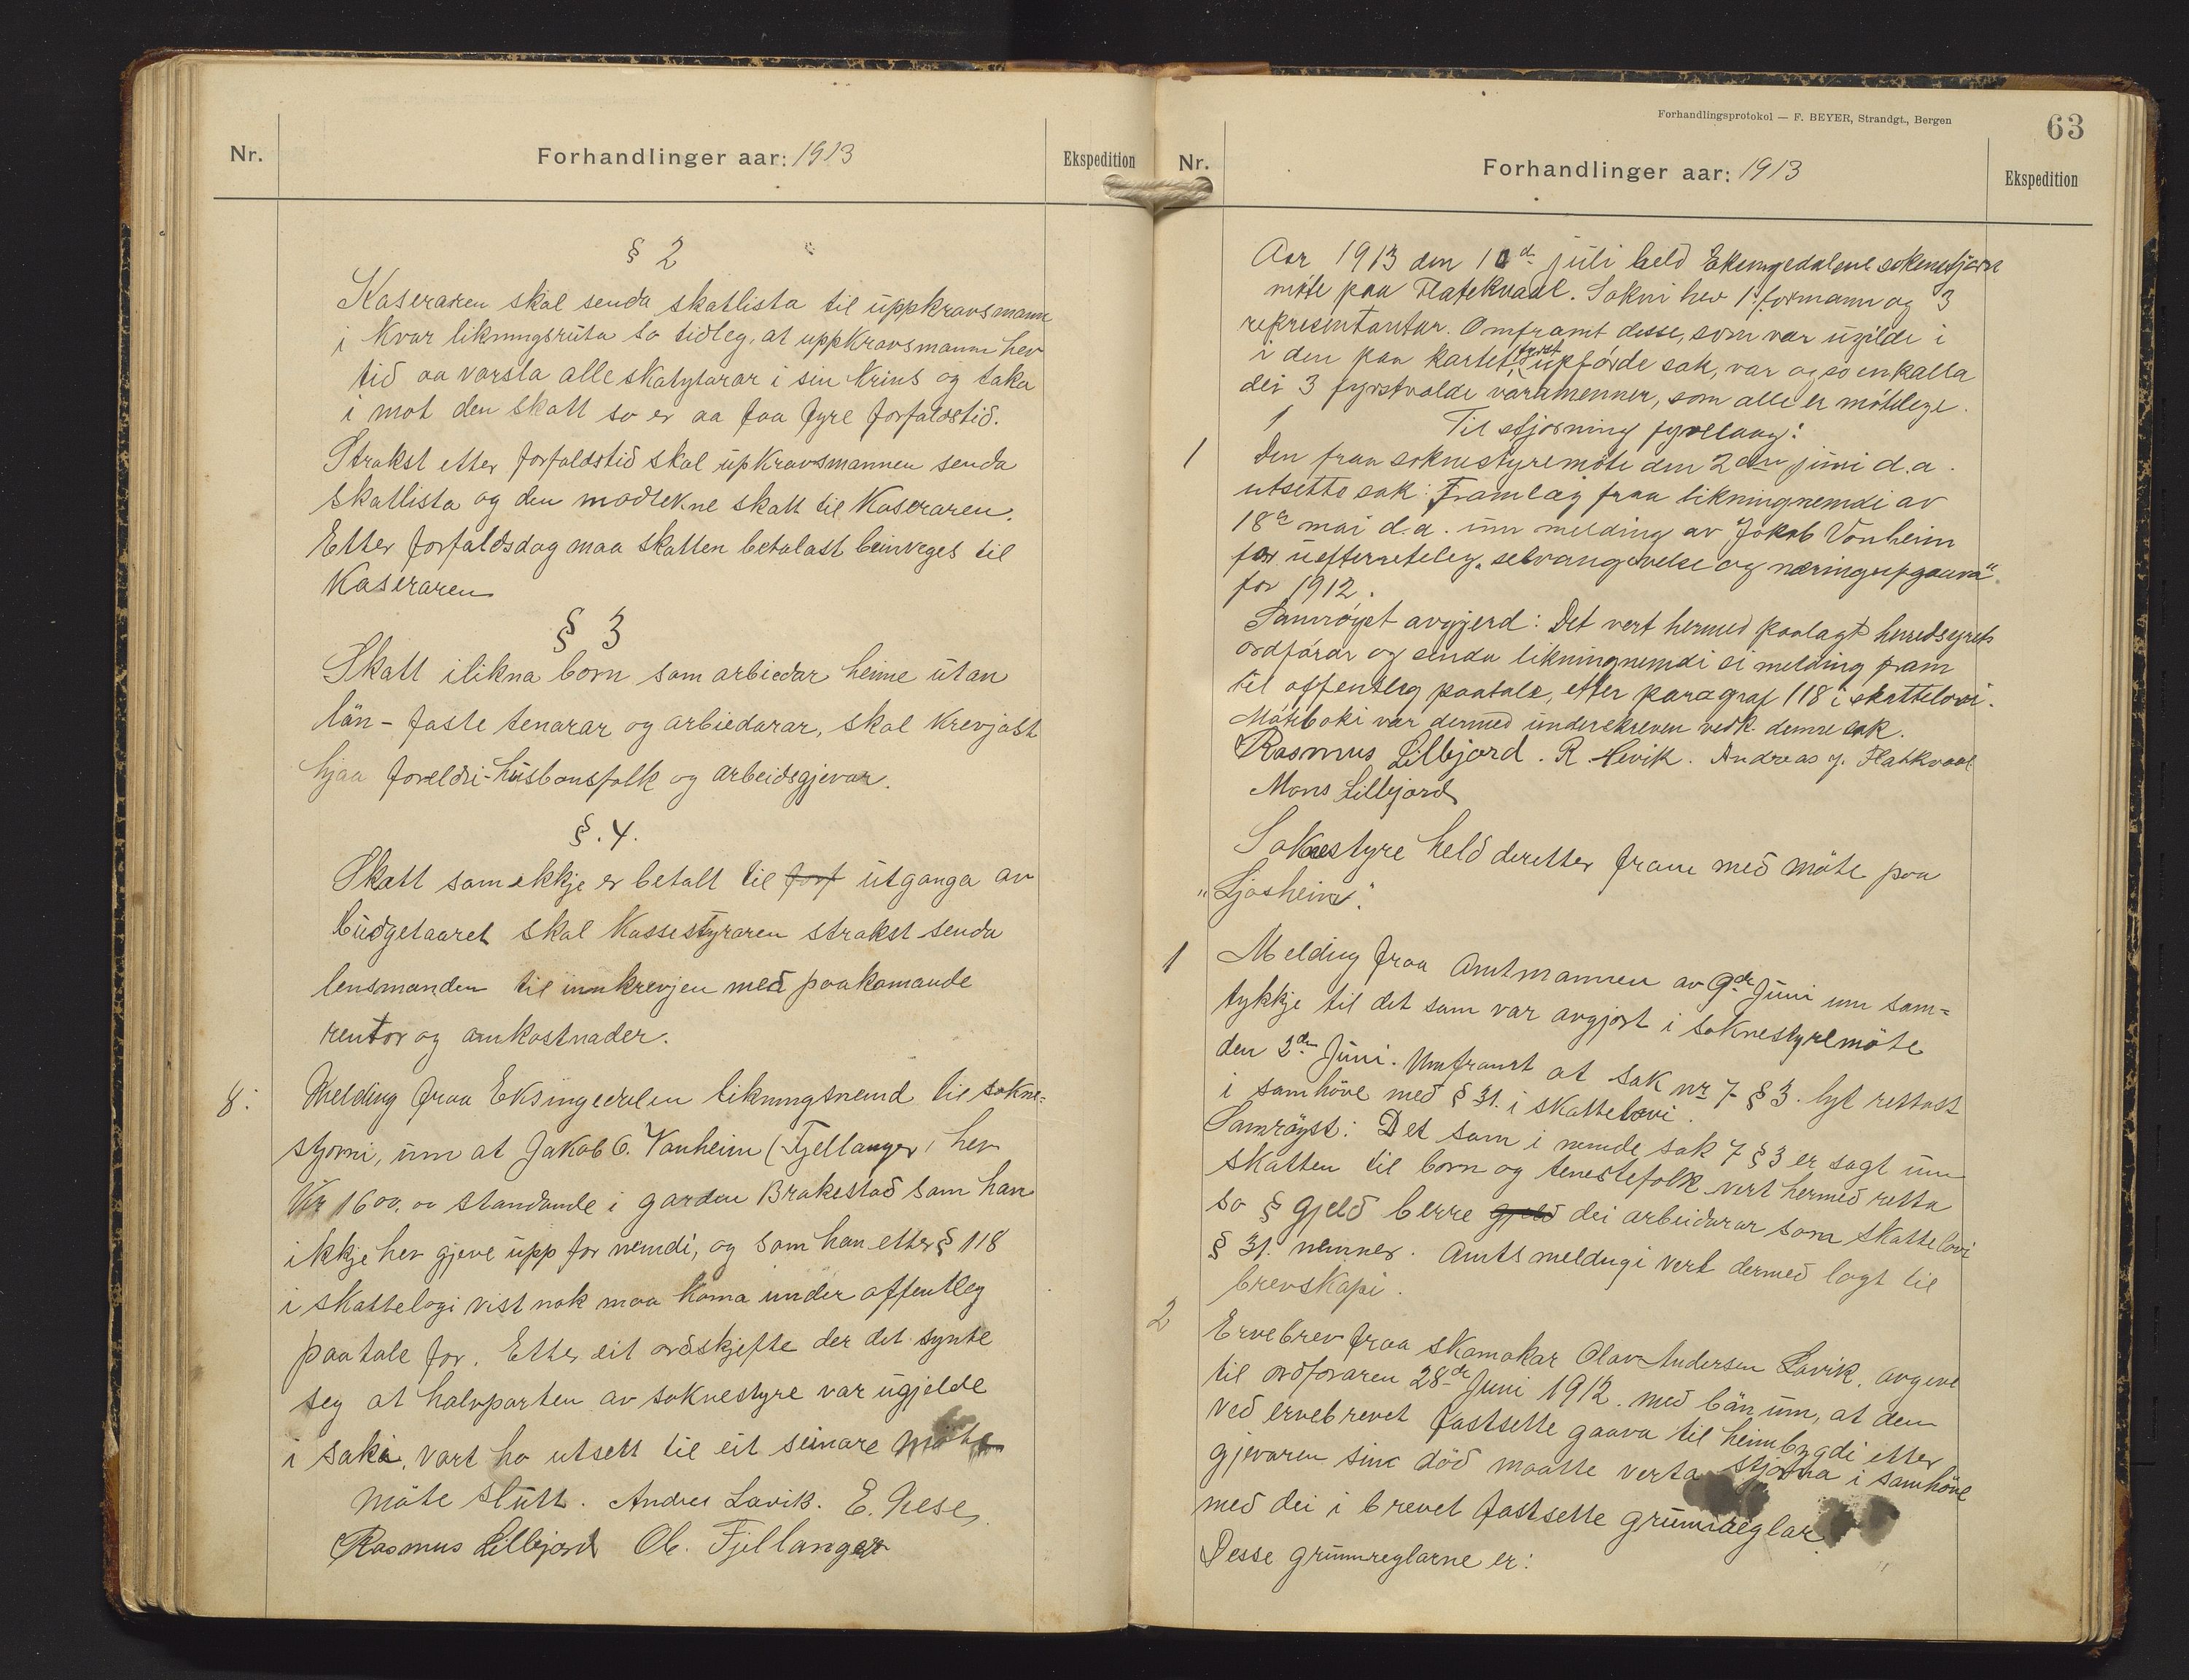 Nr.
Forhandlinger aar: 1913
Ekspedition
§ 2
Kaseraren skal senda skatlista til uppkravsmann
i kvar likningsruta so tidleg, at uppkravsmann hev
tid aa varsla alle skatytarar i sin krins og taka
i mot den skatt so er aa faa fyre forfaldstid.
Strakst etter forfaldstid skal upkravsmannen senda
skatlista og den modtekne skatt til Kaseraren.
Etter forfaldsdag maa skatten betalast beinveges til
Kaseraren
§ 3
Skatt ilikna born som arbiedar heime utan
lön - faste tenarar og arbiedarar, skal krevjast
hjaa foreldri - husbonsfolk og arbeidsgjevar.
§. 4.
Skatt som ekkje er betalt til forf utganga av
budgetaaret skal Kassestyraren strakst senda
lensmanden til innkrevjen med paakomande
rentor og omkostnader.
8.
Melding fraa Eksingedalen likningsnemd til sokne=
stjorni, um at Jakob O. Vonheim (Fjellanger) hev
Kr 1600,00 standande i garden Brakestad som han
ikkje hev gjeve upp for nemdi, og som han etter § 118
i skattelogi vist nok maa koma under offentleg
paatale for. Etter eit ordskjefte der det synte
seg at halvparten av soknestyre var ugjelde
i saki, vart ho utsett til eit seinare möte
möte slutt. Andres Lavik. E. Nese,
Rasmus Lilbjord Ol. Fjellanger
Forhandlingsprotokol — F. BEYER, Strandgt., Bergen
63
Nr.
Forhandlinger aar: 1913
Ekspedition
Aar 1913 den 10de juli held Eksingedalens soknestjorn
möte paa Flatekvaal. Sokni hev 1 formann og 3
representantar. Omframt desse, som var ugilde i
i den paa kartet fyrst uppförde sak, var ogso enkalla
dei 3 fyrstvalde varamenner, som alle er mötelege.
Til stjorning fyrelaag:
1
Den fraa soknestyremöte den 2den juni d.a.
utsette sak: Framlag fraa likningnemdi av
18de mai d.a. um melding av Jokob Vonheim
for uefterreteleg „selvangivelse og næringsupgauva“
for 1912.
Samröyst avgjerd: Det vert hermed paalagt heredsyrets
ordförar og senda likningnemdi si melding fram
til offentleg paatale, etter paragraf 118 i skattelovi.
Möteboki var dermed underskreven vedk. denne sak.
Rasmus Lilbjord. R. Hevik. Andreas J. Flatkvaal
Mons Lilbjord
Soknestyre held deretter fram med möte paa
„Ljosheim“.
1
Melding fraa Amtmannen av 9de Juni um sam=
tykkje til det som var avgjort i soknestyremöte
den 2den Juni. Umframt at sak nr 7 § 3. lyt rettast
i samhöve med § 31. i skattelovi.
Samröyst: Det som i nemde sak 7 § 3 er sagt um
skatten til born og tenestefolk vert hermed retta
so § gjeld berre gjeld dei arbeidarar som skattelovi
§ 31. nemner. Amtsmeldngi vert dermed lagt til
brevskapi.
2
Ervebrev fraa skomakar Olav Andersen Lavik, avgeve
til ordforaren 28de Juni 1912. med bön um, at den
ved ervebrevet fastsette gaava til heimbygdi etter
gjevaren sin död maatte verta stjorna i samhöve
med dei i brevet fastsette grunnreglar
Desse grunnreglarne er: